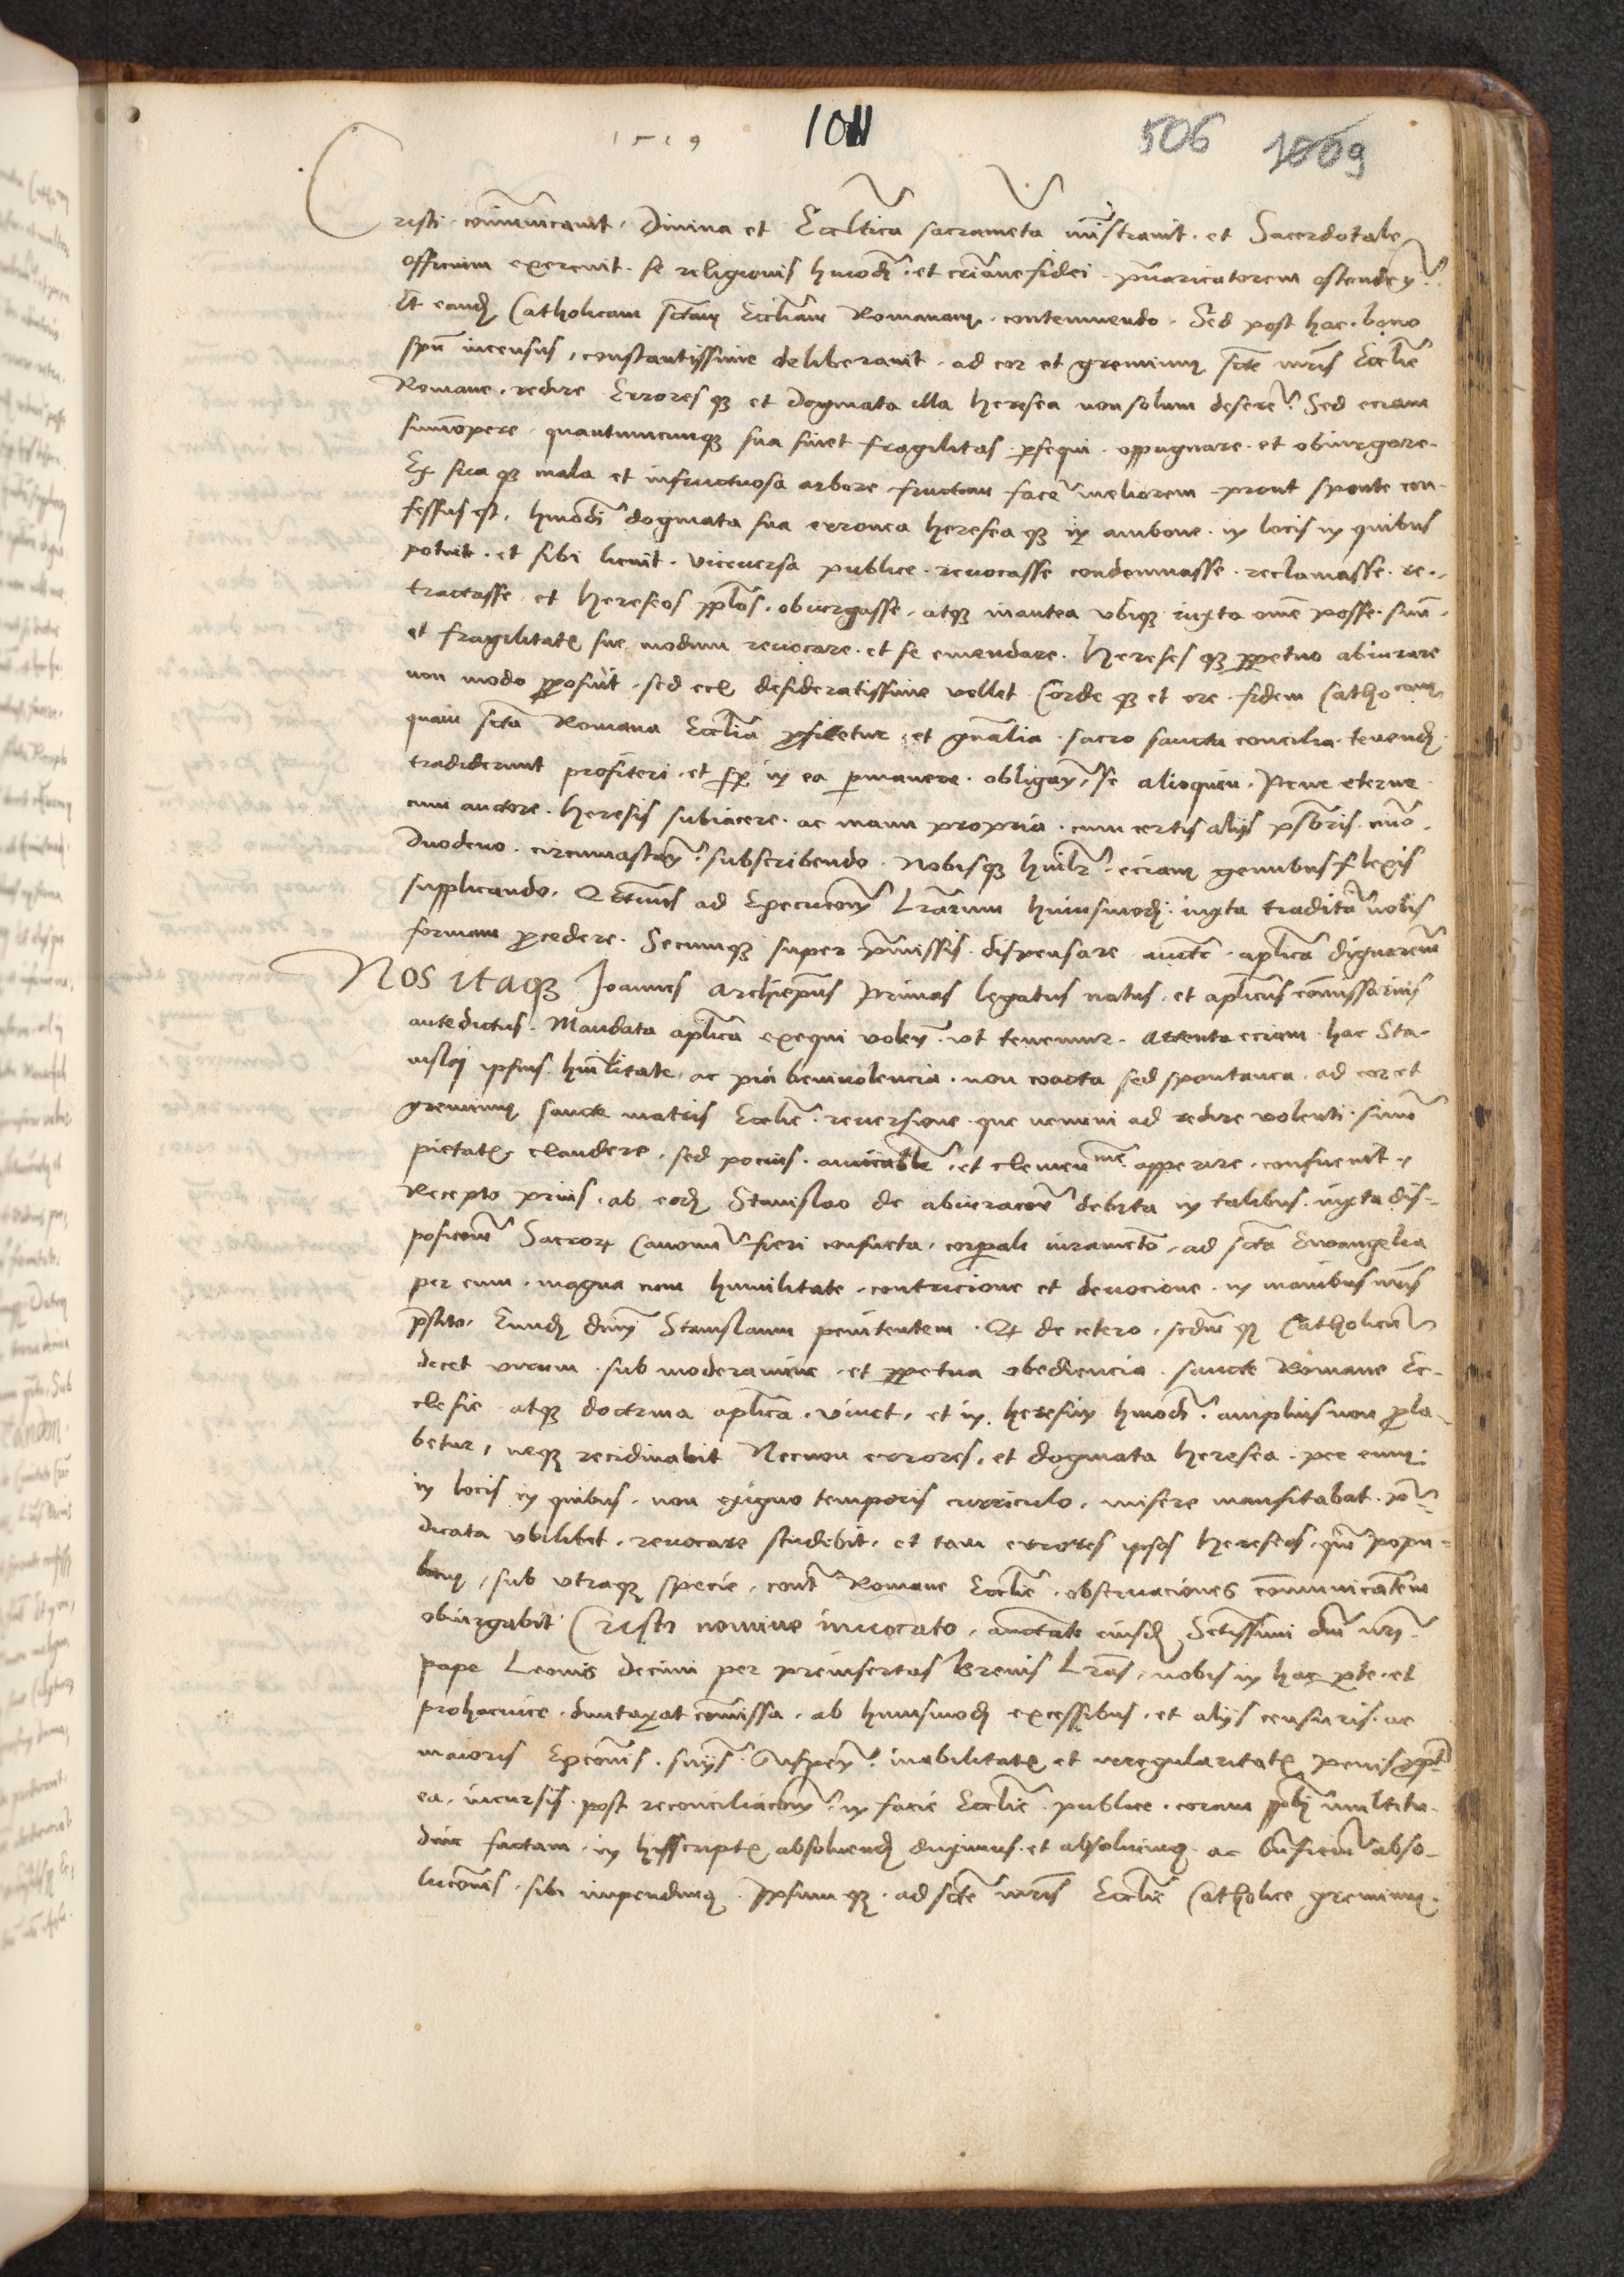 1519 1011 506 1009
Cristi co͞mmunicauit. Diuina et Eccl͞tica sacrame͞ta mi͞strauit. et Sacerdotale
officium exercuit. se religionis hmo͞di. et cri͞ane fidei. p͞uaricatorem ostenden͞.
Et eand͞ Catholicam sc͞tam Eccl͞iam Romanam. contemnendo. Sed post hac. bono
sp͞u incensus, constantissime deliberauit. ad cor et gremium sc͞te mr͞is Eccl͞ie
Romane. redire Errores q͞ et Dogmata illa heresea non solum desere͞. Sed eciam
summopere quantumcumq͞ sua sinet fragilitas p͞sequi. oppugnare. et obiurgare.
Ex sua q͞ mala et infructuosa arbore fructum face͞ meliorem prout sponte con-
fessus est, hmo͞di dogmata sua erronea heresea q͞ in ambone. in locis in quibus
potuit. et sibi licuit. viceuersa publice. reuocasse condemnasse. reclamasse. re-
tractasse et hereseos pp͞los. obiurgasse, atq͞ inantea vbiq͞ iuxta om͞e posse. suu͞.
et fragilitat͞ sue modum reuocare. et se emendare. Hereses q͞ p͞petuo abiurare
non modo p͞posuit. sed eci͞ desideratissime vellet Corde q͞ et ore. fidem Catho͞cam
quam sc͞ta Romana Eccl͞ia p͞fitetur, et gn͞alia. sacro sancta concilia tenend͞.
tradiderunt profiteri. et sp͞ in ea p͞manere. obligan͞. se alioquin. Pene eterne
cum auctore. heresis subiacere. ac manu propria. cum certis alijs p͞sb͞ris. nu͞o.
Duodeno. circumastan͞. subscribendo. Nobisq͞ hu͞il͞r. eciam genubus flexis
supplicando. ad Execucion͞ L͞rarum huiusmod͞. iuxta tradita͞ nobis
formam p͞cedere. Secumq͞ super p͞missis. dispensare auct͞e. ap͞lica dignarem͞
Nos itaq͞ Joannes Archiep͞us Primas legatus natus, et ap͞licus co͞missarius
antedictus. Mandata ap͞lica exequi volen͞. vt tenemur. Attenta eciam hac Sta-
nislai ipsius. humilitate, ac pia beniuolencia. non coacta sed spontanea. ad cor et
gremium sancte matris Eccl͞ie. reuersione. que nemini ad redire volenti. sinu͞
pietat͞ claudere, sed pocius. et clemen͞me. apperire. consueuit.
Recepto prius. ab eod͞ Stanislao de abiuracion͞ debita in talibus. iuxta dis-
posicion͞ Sacror͞ Canonu͞ fieri consueta, corp͞ali iurame͞to, ad sc͞ta Ewangelia
per eum. magna cum humilitate. contricione et deuocione. in manibus nr͞is
p͞stito. Eund͞ dn͞m Stanislaum penitentem. Q͞ de cetero. scd͞m q͞ Catholicu͞
decet virum. sub moderamine. et p͞petua obediencia. sancte Romane Ec-
clesie atq͞ doctrina ap͞lica. viuet, et in heresim hmo͞di. amplius non p͞la-
betur, neq͞ recidiuabit Necnon errores, et dogmata heresea. per eum.
in locis in quibus. non exiguo temporis curriculo, misere mansitabat. p͞-
dicata vbilibet. reuocare studebit. et tam errores ipsos hereseos. qua͞ popu-
lum, sub vtraq͞ specie, cont͞ Romane Eccl͞ie. obseruaciones co͞municante͞m
obiurgabit. Cristi nomine inuocato, auct͞ate eiusd͞ Sc͞tissimi dn͞i nr͞i
pape Leonis decimi per preinsertas Breuis L͞ras, nobis in hac p͞te. et
prohacuice. duntaxat co͞missa. ab huiusmod͞ excessibus, et alijs censuris. ac
maioris Exco͞nis. suspen͞. inabilitat͞ et irregularitat͞ penis p͞pt͞
ea. incursis. post reconciliacion͞. in facie Eccl͞ie. publice. coram pp͞li multitu-
dine factam. in hisscript͞ absoluend͞ duximus. et absoluimus. ac b͞nficiu͞ abso-
lucio͞nis. sibi impendimus. Ipsum q͞. ad sc͞te mr͞is Eccl͞ie Catholice gremium.